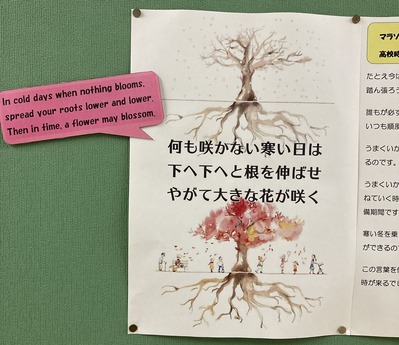 In cold days when nothing blooms,
spread your roots lower and lower.
Then in time, a flower may blossom.
何も咲かない寒い日は
下へ下へと根を伸ばせ
やがて大きな花が咲く
マラソ
高校時
たとえ今は
踏ん張ろう
誰もが必ず
いつも順風
うまくいか
るのです。
うまくいか
ねていく時
備期間です
寒い冬を乗
ができるの
この言葉を
時が来るでし